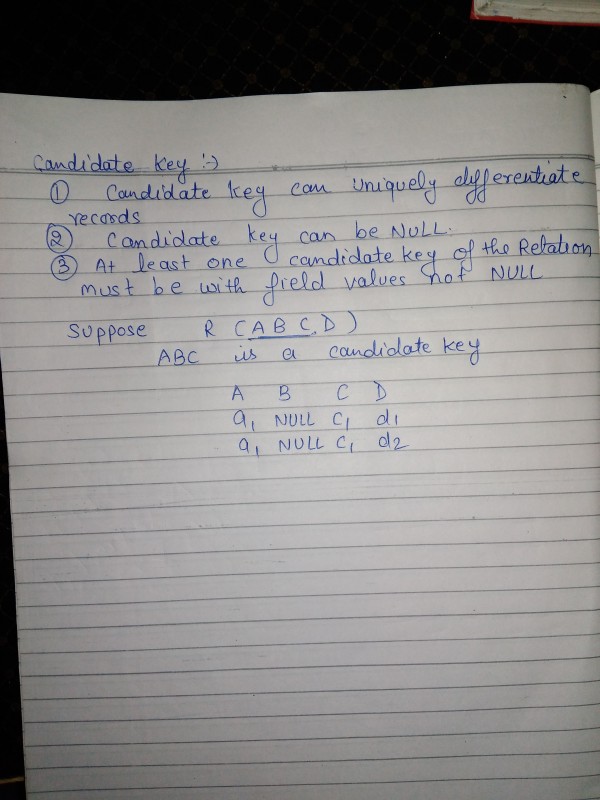 Candidate Key :-)
① Candidate key can uniquely differentiate
records
② Candidate key can be NULL.
③ At least one candidate key of the Relation
must be with field values not NULL
Suppose R (A B C, D)
ABC is a candidate key
A B C D
a₁ NULL C₁ d₁
a₁ NULL C₁ d₂